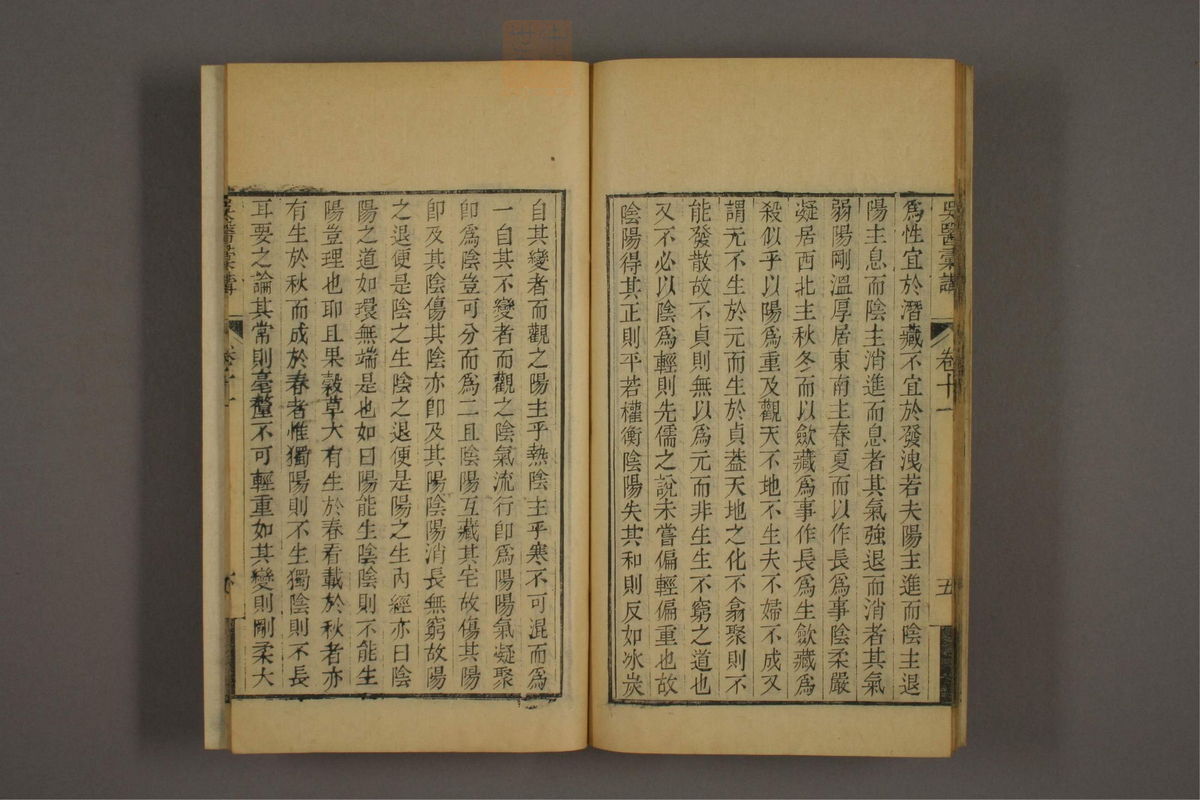 吳醫彙講
卷十一
五
爲性宜於潛藏不宜於發洩若夫陽主進而陰主退
陽主息而陰主消進而息者其氣強退而消者其氣
弱陽剛溫厚居東南主春夏而以作長爲事陰柔嚴
凝居西北主秋冬而以歛藏爲事作長爲生歛藏爲
殺似乎以陽爲重及觀天不地不生夫不婦不成又
謂无不生於元而生於貞葢天地之化不翕聚則不
能發散故不貞則無以爲元而非生生不窮之道也
又不必以陰爲輕則先儒之說未嘗偏輕偏重也故
陰陽得其正則平若權衡陰陽失其和則反如冰炭
自其變者而觀之陽主乎熱陰主乎寒不可混而爲
一自其不變者而觀之陰氣流行卽爲陽陽氣凝聚
卽爲陰豈可分而爲二且陰陽互藏其宅故傷其陽
卽及其陰傷其陰亦卽及其陽陰陽消長無窮故陽
之退便是陰之生陰之退便是陽之生內經亦曰陰
陽之道如環無端是也如曰陽能生陰陰則不能生
陽豈理也耶且果穀草大有生於春看載於秋者亦
有生於秋而成於春者惟獨陽則不生獨陰則不長
耳要之論其常則毫釐不可輕重如其變則剛柔大
吳醫彙講
卷十一